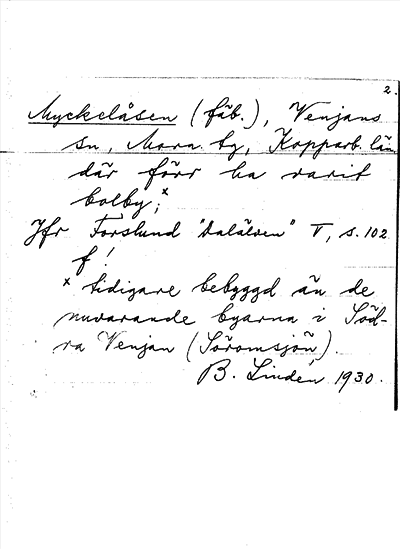 2.
Myckelåsen (fäb.), Venjans
sn, Mora tg, Kopparb. län
där förr ha varit
bolby;ˣ
Jfr Forslund "Dalälven" I, s. 102
f!
ˣ tidigare bebyggd än de
nuvarande byarna i Söd-
ra Venjan (Söromsjön).
B. Lindén, 1930.